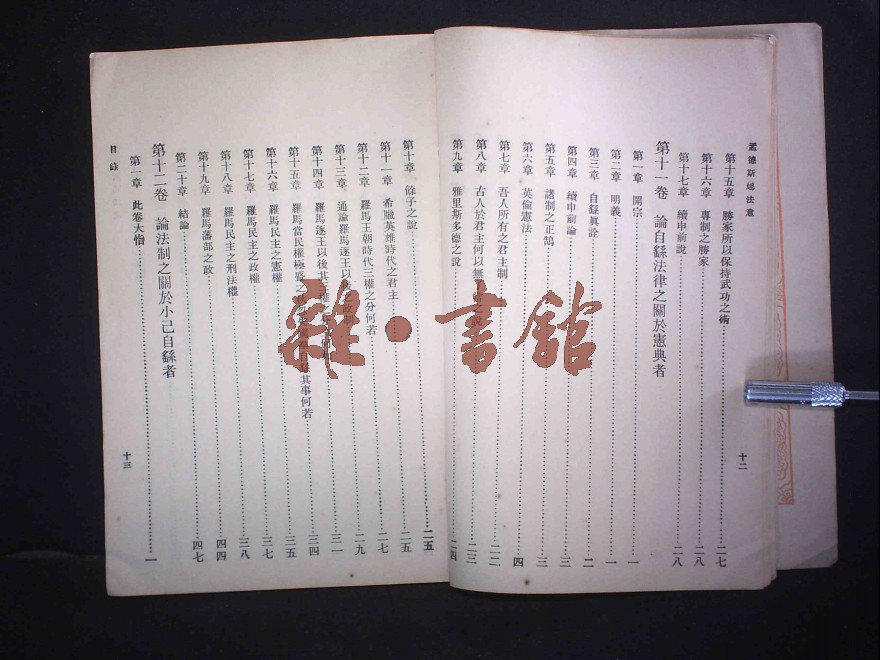 孟德斯鳩法意
第十五章 勝家所以保持武功之術 二七
第十六章 專制之勝家 二八
第十七章 續申前說 二八
第十一卷 論自繇法律之關於憲典者
第一章 開宗 一
第二章 明義 一
第三章 自繇眞詮 二
第四章 續申前論 三
第五章 諸制之正鵠 三
第六章 英倫憲法 四
第七章 吾人所有之君主制 二二
第八章 古人於君主何以無 之說 二三
第九章 雅里斯多德之說 二四
十二
第十章 餘子之說 二五
第十一章 希臘英雄時代之君主 二五
第十二章 羅馬王朝時代三權之分何若 二七
第十三章 通論羅馬逐王以後 二九
第十四章 羅馬逐王以後其 三一
第十五章 羅馬當民權極盛之 其事何若 三四
第十六章 羅馬民主之憲權 三五
第十七章 羅馬民主之政權 三七
第十八章 羅馬民主之刑法權 三八
第十九章 羅馬藩部之政 四四
第二十章 結論 四七
第十二卷 論法制之關於小己自繇者
第一章 此卷大恉 一
目錄
十三
雜·書館